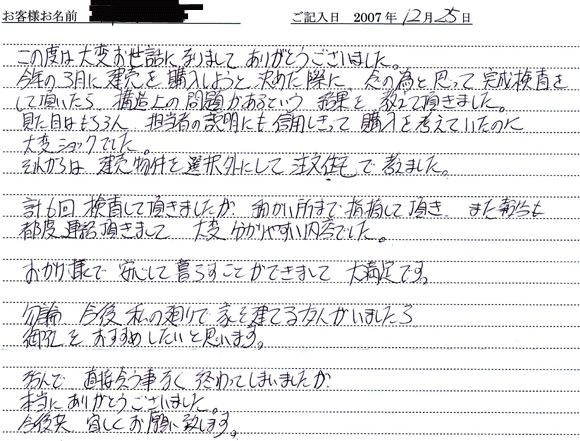 お客様お名前 ご記入日 2007年12月25日
この度は大変お世話になりまして ありがとうございました。
今年の3月に 建売を購入しようと決めた際に、念の為と思って完成検査を
して頂いたら、構造上の問題があるという 結果を 教えて頂きました。
見た目はもちろん 担当者の説明にも信用しきって購入を考えていたのに
大変ショックでした。
それからは 建売物件を選択外にして 注文住宅で考えました。
計6回 検査して頂きましたが 細かい所まで指摘して頂き、また報告も
都度連絡頂きまして 大変分かりやすい内容でした。
おかげ様で 安心して暮らすことができまして 大満足です。
勿論 今後 私の廻りで 家を建てる友人がいましたら
御社を おすすめしたいと思います。
直接会う事なく 終わってしまいましたが
本当に ありがとうございました。
今後共 宜しくお願い致します。